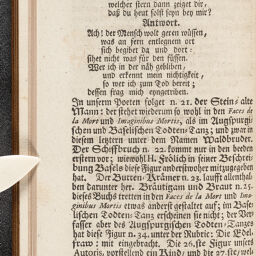 welcher stern dann zeiget dir,
daß du heut solst seyn bey mir?
Antwort.
Ach! der Mensch wolt geren wüssen,
was an fern entlegnem ort
sich begibet da und dort:
sihet nicht was für den füssen.
Wer ich in der näh gebliben,
und erkennt mein nichtigkeit,
so wer ich zum Tod bereit;
dessen frag mich eyngetriben.
In unserm Poeten folget n. 21. der Stein/alte
Mann: der stehet wiederum so wohl in den Faces de
la Mort und Imaginibus Mortis, als im Augspurgi-
schen und Baselischen Todten/Tanz; und zwar in
diesem letztern unter dem Namen Waldbruder.
Der Schiffbruch n. 22. kommt nur in den beeden
erstern vor; wiewohl H. Frölich in seiner Beschrei-
bung Basels diese Figur anderstwoher mitzugegeben
hat. Der Butten-Krämer n. 23. laufft allenthal-
ben darunter her. Bräutigam und Braut n. 25.
dieses Buchs tretten in den Faces de la Mort und Ima-
ginibus Mortis etwas anderst gestaltet auf; im Base-
lischen Todten-Tanz erscheinen sie nicht; der Ver-
fasser aber des Augspurgischen Todten-Tanzes
hat diese Figur n. 34. unter der Rubric: Die Wel-
fraw: mit eingebracht. Die 26.ste Figur unsers
Autoris, vorstellend ein Kind; und die 27.ste, wel-